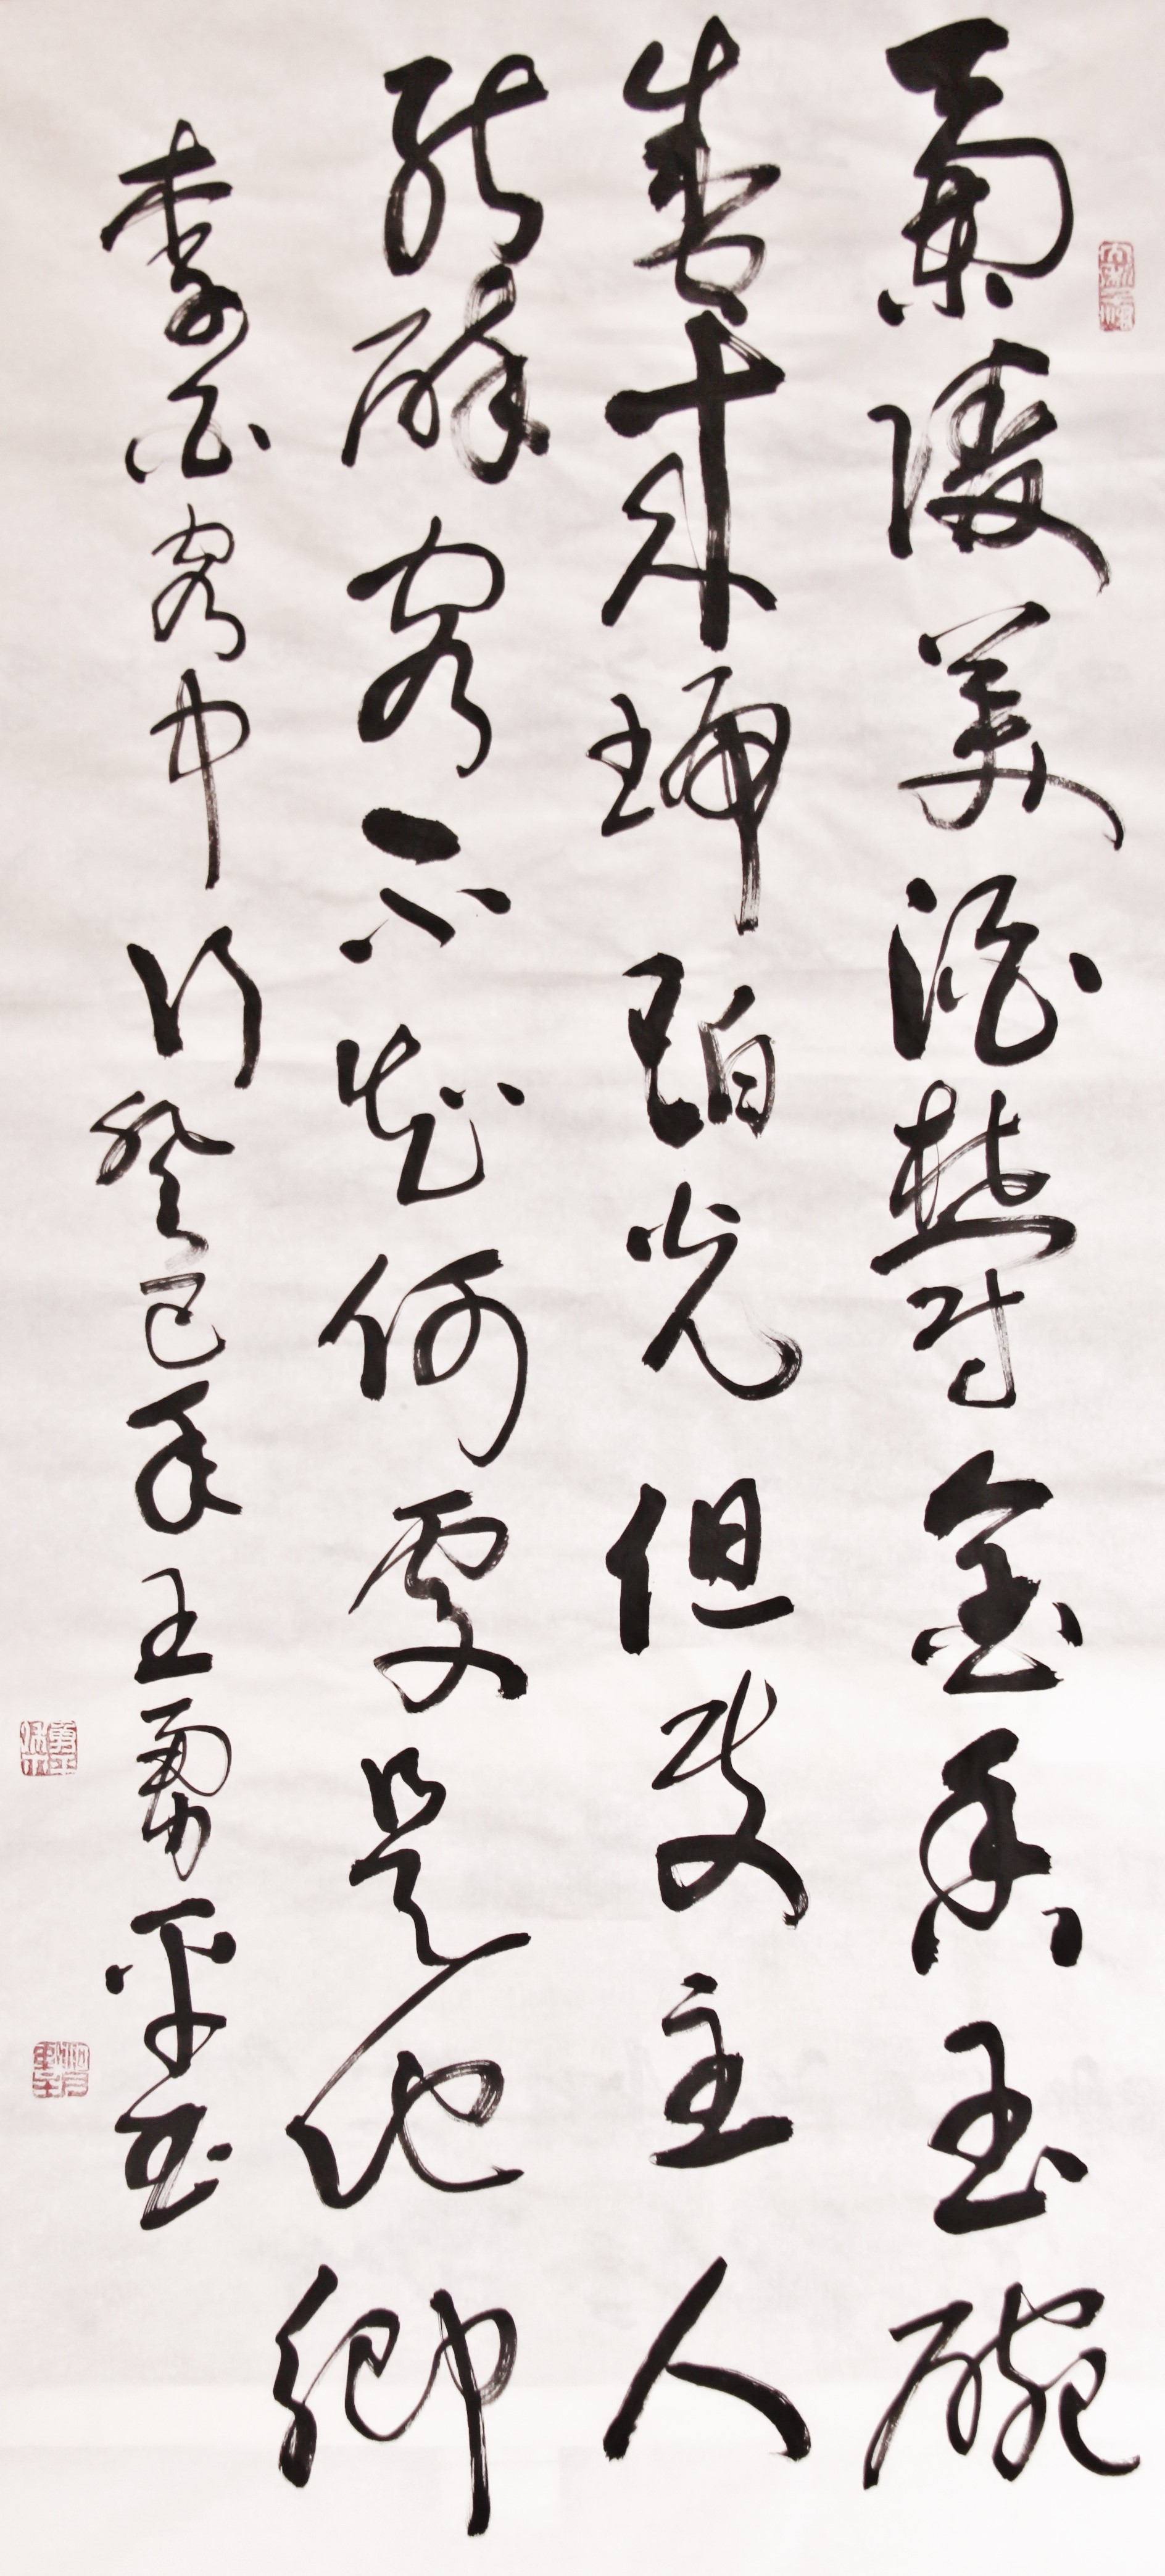 蘭陵美酒鬱金香玉碗
盛來琥珀光但使主人
能醉客不知何處是他鄉
李白客中行癸巳年王勇平書